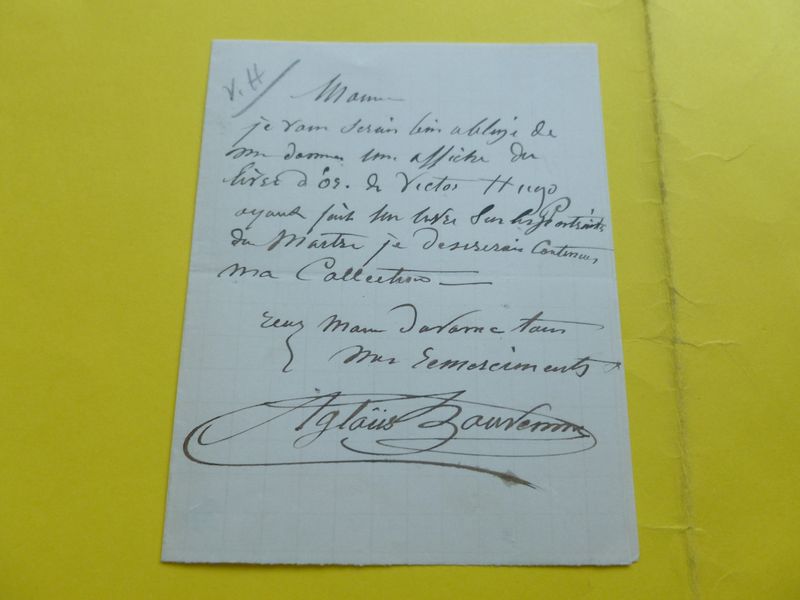 V. H
je vous serais bien obligé de
me donner une affiche du
livre d'or. de Victor Hugo
ayant fait un livre sur les Portraits
du Maitre je desirerais Continuer
ma Collection
d'avance tous
mes remerciments
Aglaüs Bouvenne